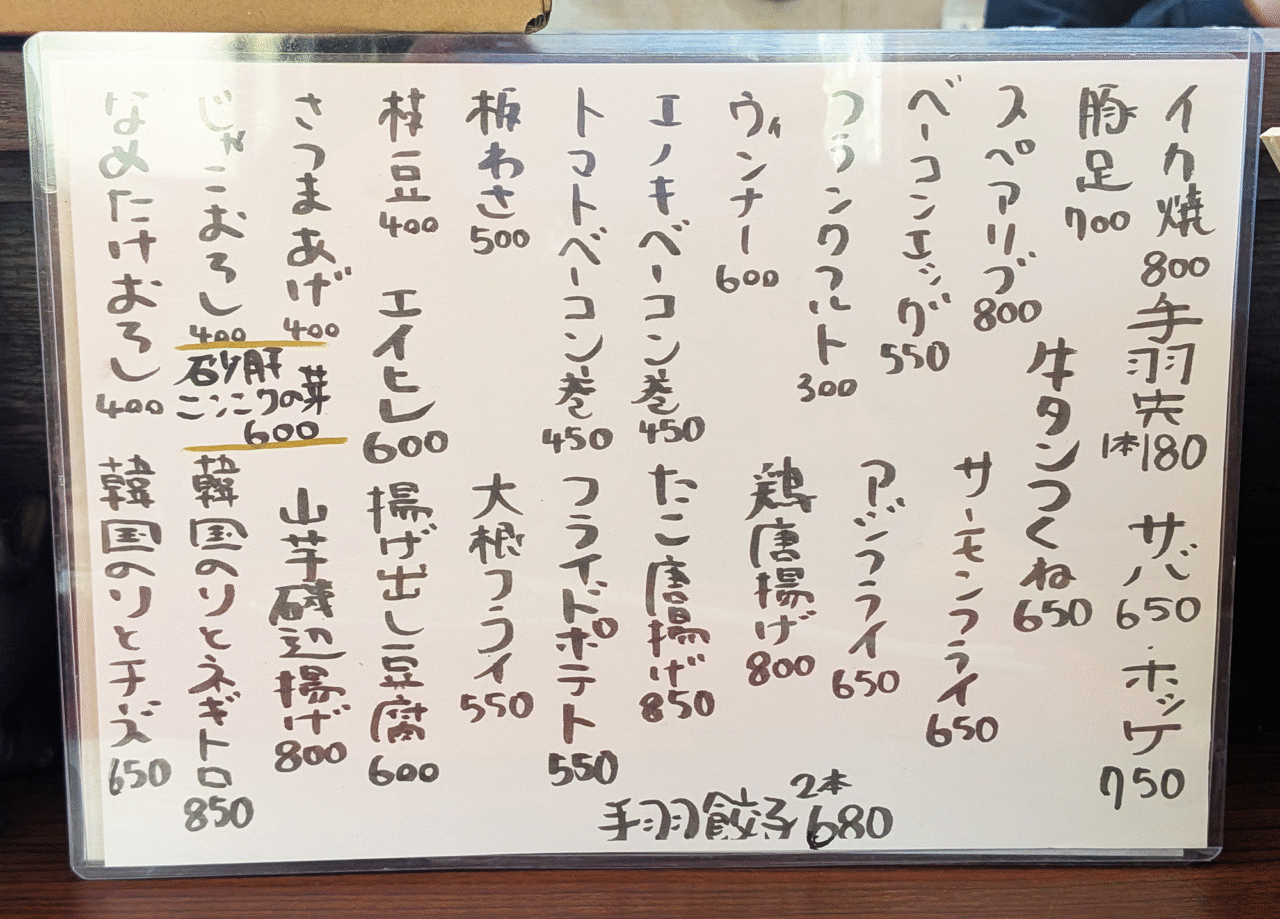 イカ焼
800
手羽先
1本180
サバ
650
ホッケ
750
豚足
700
牛タンつくね
650
スペアリブ
800
サーモンフライ
650
ベーコンエッグ
550
アジフライ
650
フランクフルト
300
鶏唐揚げ
800
ウィンナー
600
たこ唐揚げ
850
エノキベーコン巻
450
フライドポテト
550
トマトベーコン巻
450
大根フライ
550
板わさ
500
揚げ出し豆腐
600
枝豆
400
エイヒレ
600
山芋磯辺揚げ
800
さつまあげ
400
じゃこおろし
400
砂肝
ニンニクの芽
600
韓国のりとネギトロ
850
なめたけおろし
400
韓国のりとチーズ
650
手羽餃子2本
680